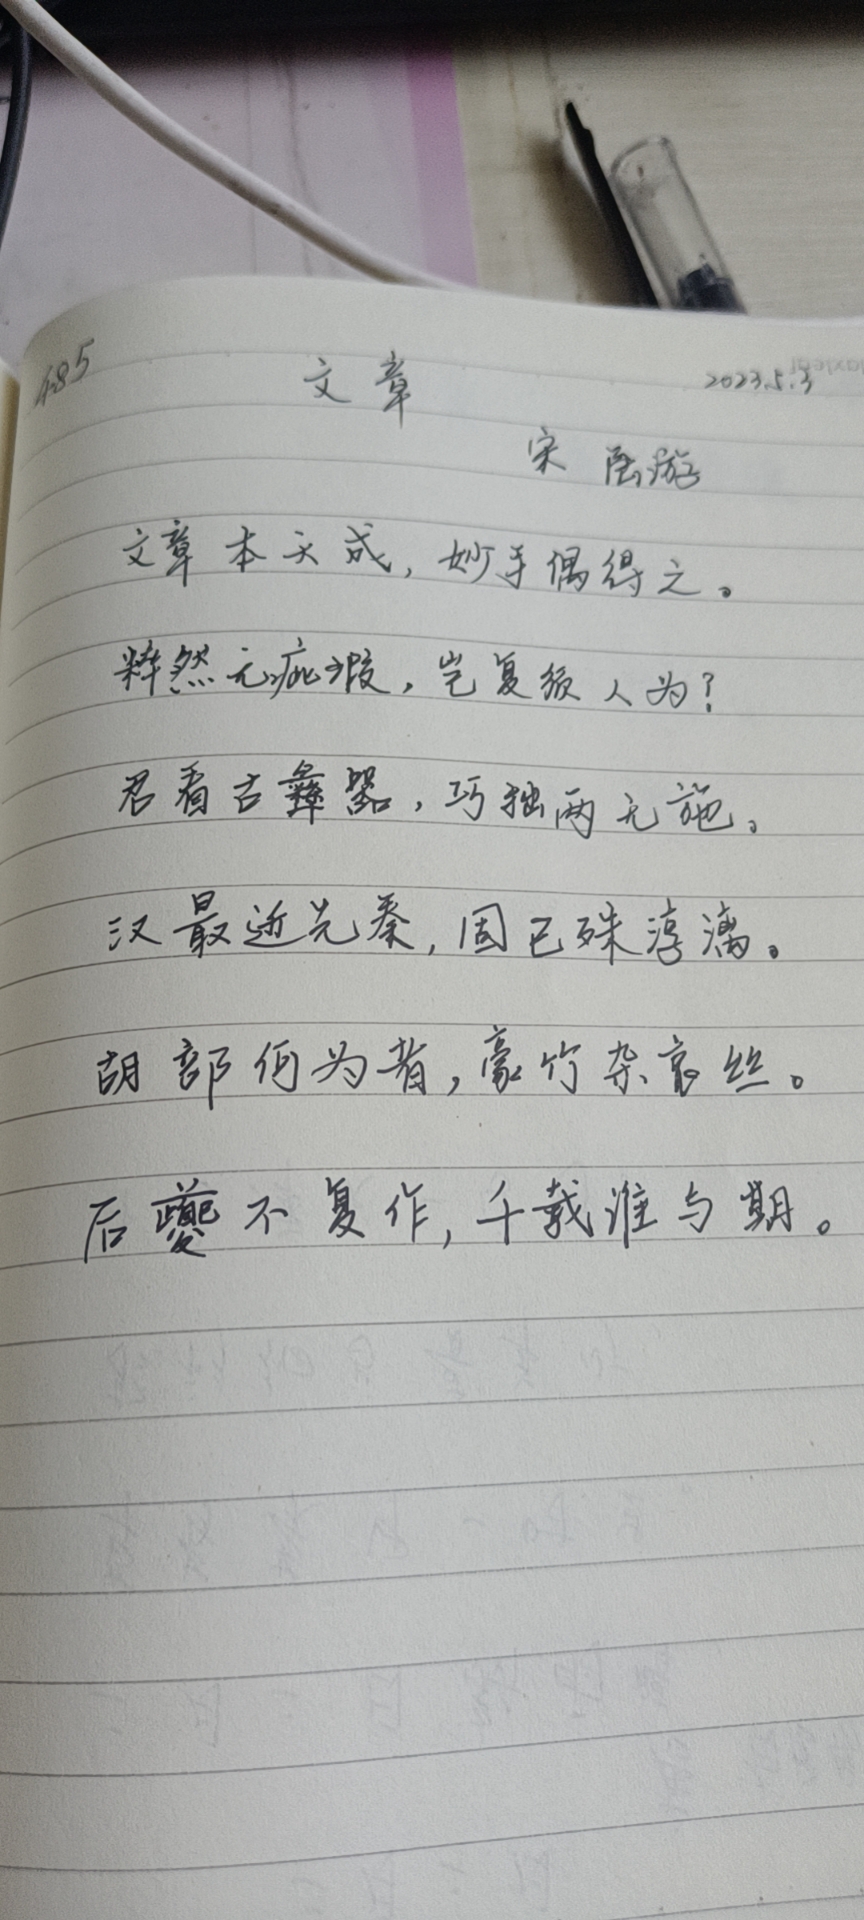 485
文章
2023.5.3
宋 陆游
文章本天成，妙手偶得之。
粹然无疵瑕，岂复须人为？
君看古彝器，巧拙两无施。
汉最近先秦，固已殊淳漓。
胡部何为者，豪竹杂哀丝。
后夔不复作，千载谁与期。